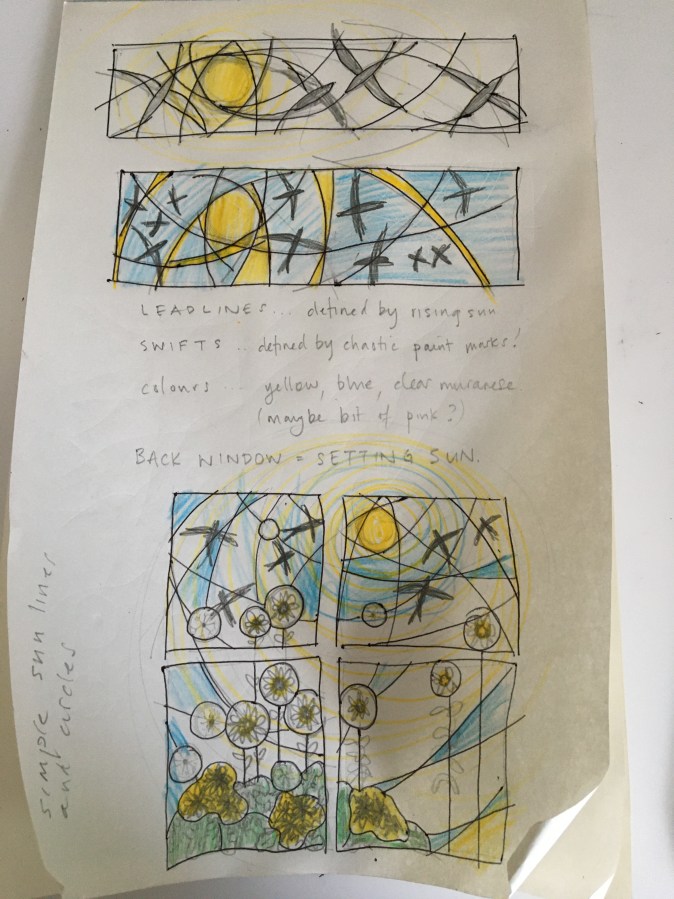 LEADLINES... defined by rising sun
SWIFTS .. defined by chaotic paint marks!
colours ... yellow, blue, clear muranese
(maybe bit of pink?)
BACK WINDOW = SETTING SUN.
simple sun lines
and circles